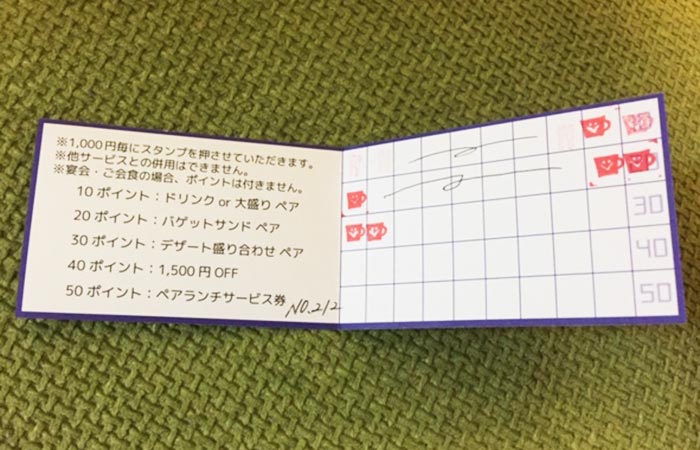 ※1,000円毎にスタンプを押させていただきます。
※他サービスとの併用はできません。
※宴会・ご会食の場合、ポイントは付きません。
10ポイント：ドリンク or 大盛り ペア
20ポイント：バゲットサンド ペア
30ポイント：デザート盛り合わせ ペア
40ポイント：1,500円OFF
50ポイント：ペアランチサービス券
NO.212
30
40
50